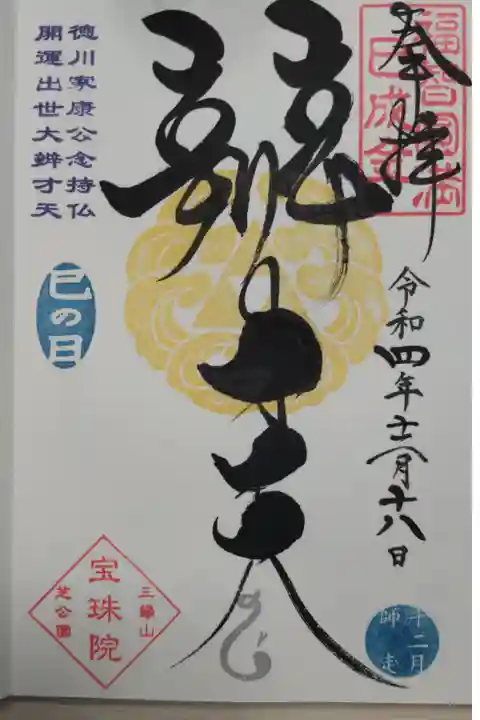 奉拝
福智圓満
巳成金
令和四年十二月十八日
辨才天
徳川家康公念持仏
開運出世大辨才天
巳の日
三縁山
宝珠院
芝公園
十二月
師走